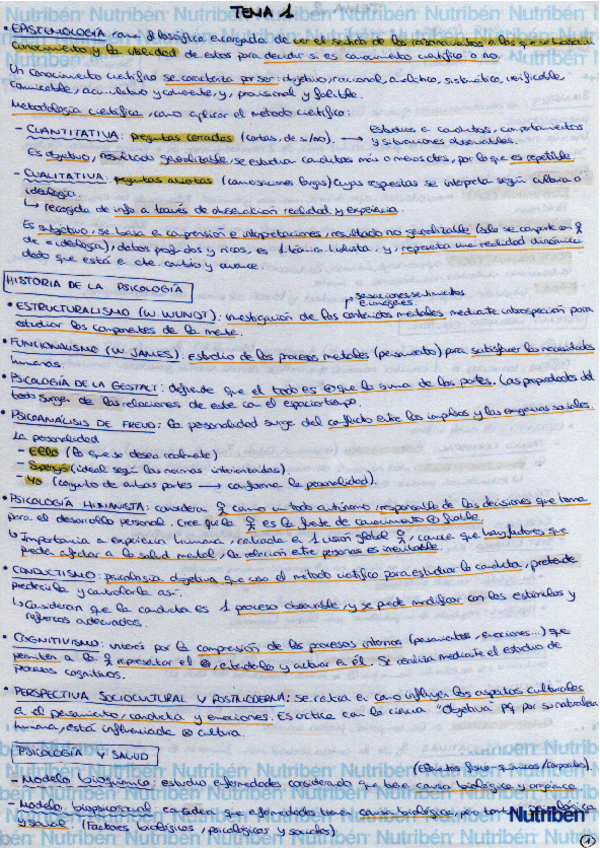 TEMA 1
• EPISTEMOLOGÍA: rama filosófica encargada de ver el sentido de los razonamientos a los que se llega en el
conocimiento y la utilidad de estos para decidir si es conocimiento científico o no.
Un conocimiento científico se caracteriza por ser: objetivo, racional, analítico, sistemático, verificable,
comunicable, acumulativo y coherente, y, provisional y falible.
Metodología científica, como aplicar el método científico:
- CUANTITATIVA: preguntas cerradas (cortas, de si/no). → Estudios a conductas, comportamientos y situaciones observables.
Es objetivo, resultado generalizable, se estudian conductas más o menos ctes, por lo que es repetible.
- CUALITATIVA: preguntas abiertas (conversaciones largas) cuyas respuestas se interpreta según cultura o
ideología.
↳ recogida de info a través de observación realidad y experiencia.
Es subjetivo, se basa en comprensión e interpretaciones, resultado no generalizable (solo se comparte con
de = ideología), datos profundos y ricos, es 1 técnica inductiva y, representa una realidad dinámica
dado que está en cte. cambio y avance.
HISTORIA DE LA PSICOLOGÍA
sensaciones, sentimientos
e imágenes
• ESTRUCTURALISMO (W. WUNDT): investigación de los contenidos mentales mediante introspección para
estudiar los componentes de la mente.
• FUNCIONALISMO (W. JAMES): estudio de los procesos mentales (pensamiento) para satisfacer las necesidades
humanas.
• PSICOLOGÍA DE LA GESTALT: defiende que el todo es ⊕ que la suma de las partes. Las propiedades del
todo surgen de las relaciones de este con el espacio tiempo.
• PSICOANÁLISIS DE FREUD: la personalidad surge del conflicto entre los impulsos y las exigencias sociales.
La personalidad
- Ello (lo que se desea realmente)
- Superyó (ideal según las normas interiorizadas).
- Yo (conjunto de ambas partes → conforma la personalidad).
• PSICOLOGÍA HUMANISTA: considera como un todo autónomo, responsable de las decisiones que toma
para el desarrollo personal. Cree que la es la fuente de conocimiento ⊕ fiable.
↳ Importancia a experiencia humana, rechazada a 1 visión global, conoce que hay factores que
puede afectar a la salud mental, la relación entre personas es inevitable.
• CONDUCTISMO: psicología objetiva que usa el método científico para estudiar la conducta, pretende
predecirla y controlarla así.
↳ Consideran que la conducta es 1 proceso observable, y se puede modificar con los estímulos y
refuerzos adecuados.
• COGNITIVISMO: interés por la compresión de los procesos internos (pensamientos, emociones...) que
permiten a la representar el, entenderlo y actuar en él. Se analiza mediante el estudio de
procesos cognitivos.
• PERSPECTIVA SOCIOCULTURAL Y POSTMODERNA: se centra en como influyen los aspectos culturales
en el pensamiento, conducta y emociones. Es crítica con la ciencia "objetiva" pq por su naturaleza
humana, está influenciada cultura.
PSICOLOGÍA Y SALUD
- Modelo bioquímico: estudia enfermedades considerando que tiene causa biológica y orgánica
- Modelo biopsicosocial: considera que enfermedades tienen causa biológica, pero también psicológica
y social. (Factores biológicos, psicológicos y sociales)
Nutribén
1